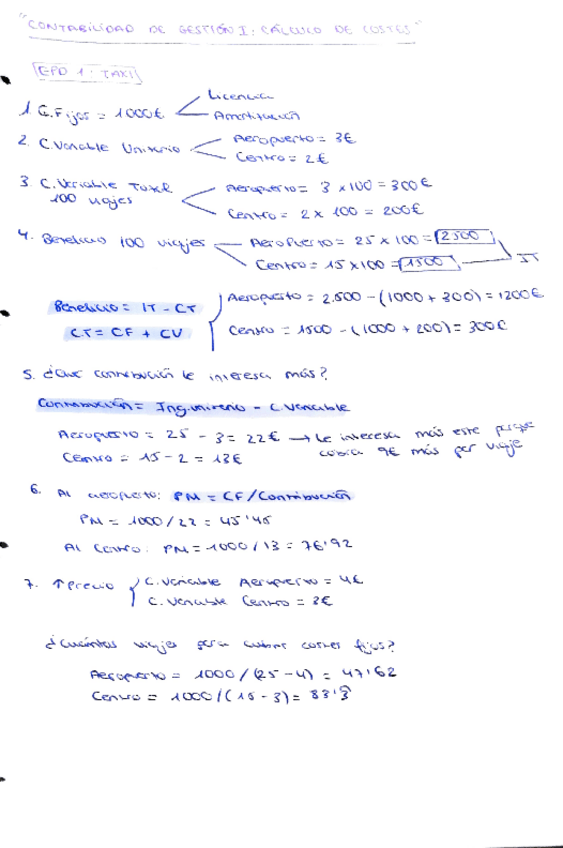 "CONTABILIDAD DE GESTIÓN I: CÁLCULO DE COSTES"
EPD 1: TAXI
1. G.Fijos = 1000€
Licencia
Amortización
2. C.Variable Unitario
Aeropuerto = 3€
Centro = 2€
3. C.Variable Total
100 viajes
Aeropuerto = 3 x 100 = 300€
Centro = 2 x 100 = 200€
4. Beneficio 100 viajes
Aeropuerto = 25 x 100 = 2500
Centro = 15 x 100 = 1500
IT
Beneficio = IT - CT
CT = CF + CV
Aeropuerto = 2.500 - (1000 + 300) = 1200€
Centro = 1500 - (1000 + 200) = 300€
5. ¿Qué contribución le interesa más?
Contribución = Ing.unitario - C.Variable
Aeropuerto = 25 - 3 = 22€ → Le interesa más este porque
Centro = 15 - 2 = 13€ cobra 9€ más por viaje
6. Al aeropuerto: PM = CF/Contribución
PM = 1000/22 = 45'45
Al Centro: PM = 1000/13 = 76'92
7. ↑ Precio
C.Variable Aeropuerto = 4€
C.Variable Centro = 3€
¿Cuántos viajes para cubrir costes fijos?
Aeropuerto = 1000/(25-4) = 47'62
Centro = 1000/(15-3) = 83'3